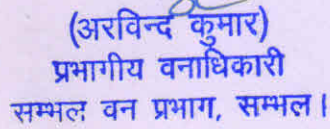 (अरविन्द कुमार)
प्रभागीय वनाधिकारी
सम्भल वन प्रभाग, सम्भल।